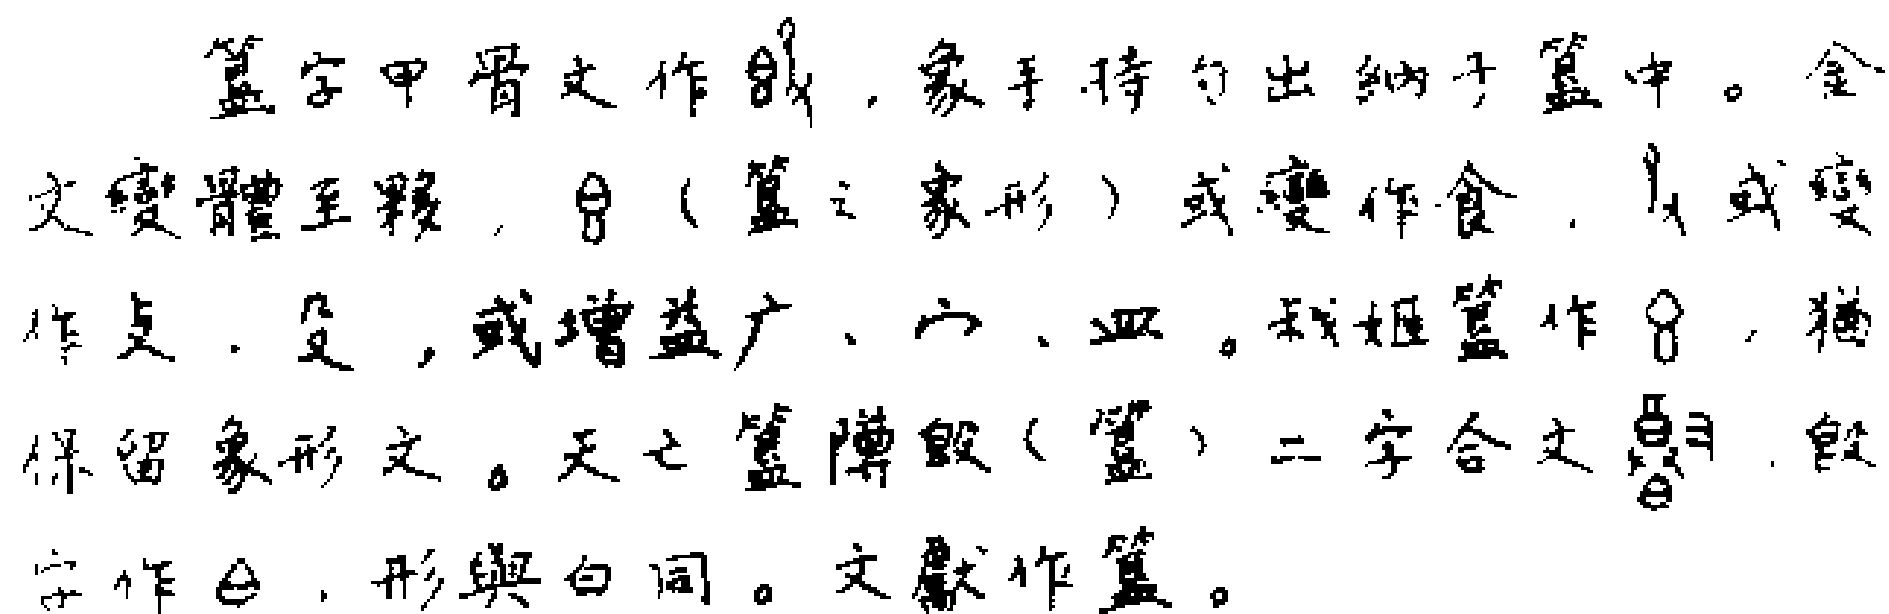 簋字甲骨文作，象手持勺出納于簋中。金
文變體至夥，（簋之象形）或變作食，或變
作，殳，或增益广、宀、皿。姬簋作，猶
保留象形文。天亡簋障𣪘（簋）二字合文，𣪘
字作，形與白同。文獻作簋。